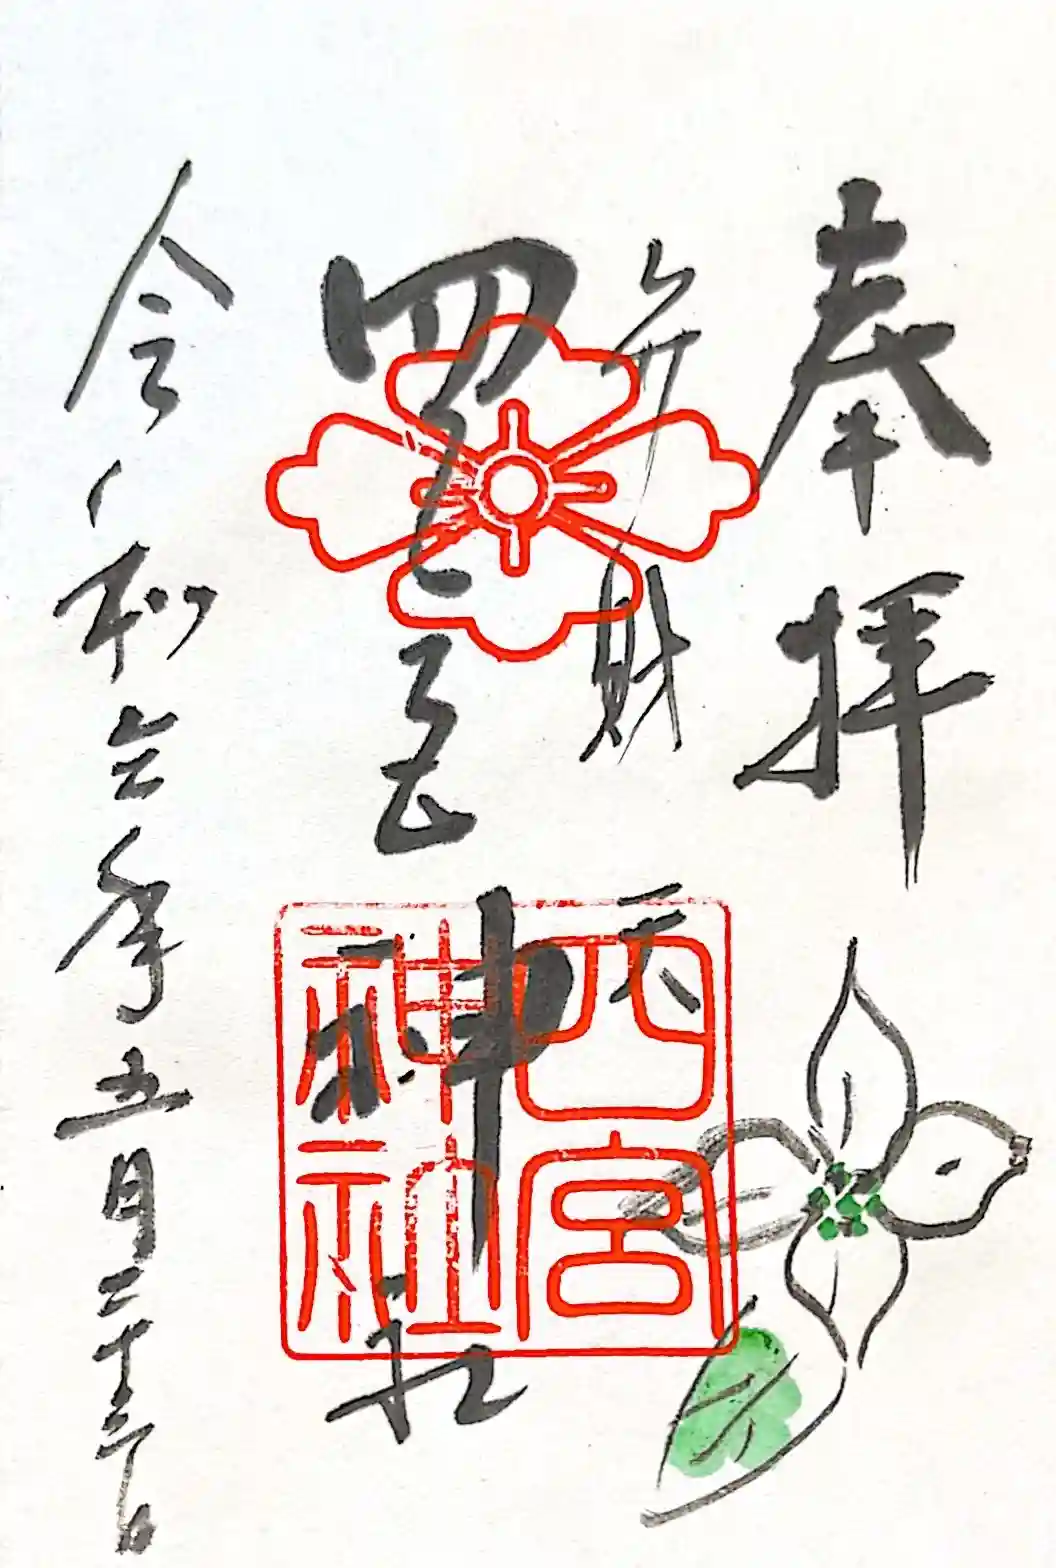 奉拝
弁財天
四宮神社
四宮神社
令和六年五月二十三日